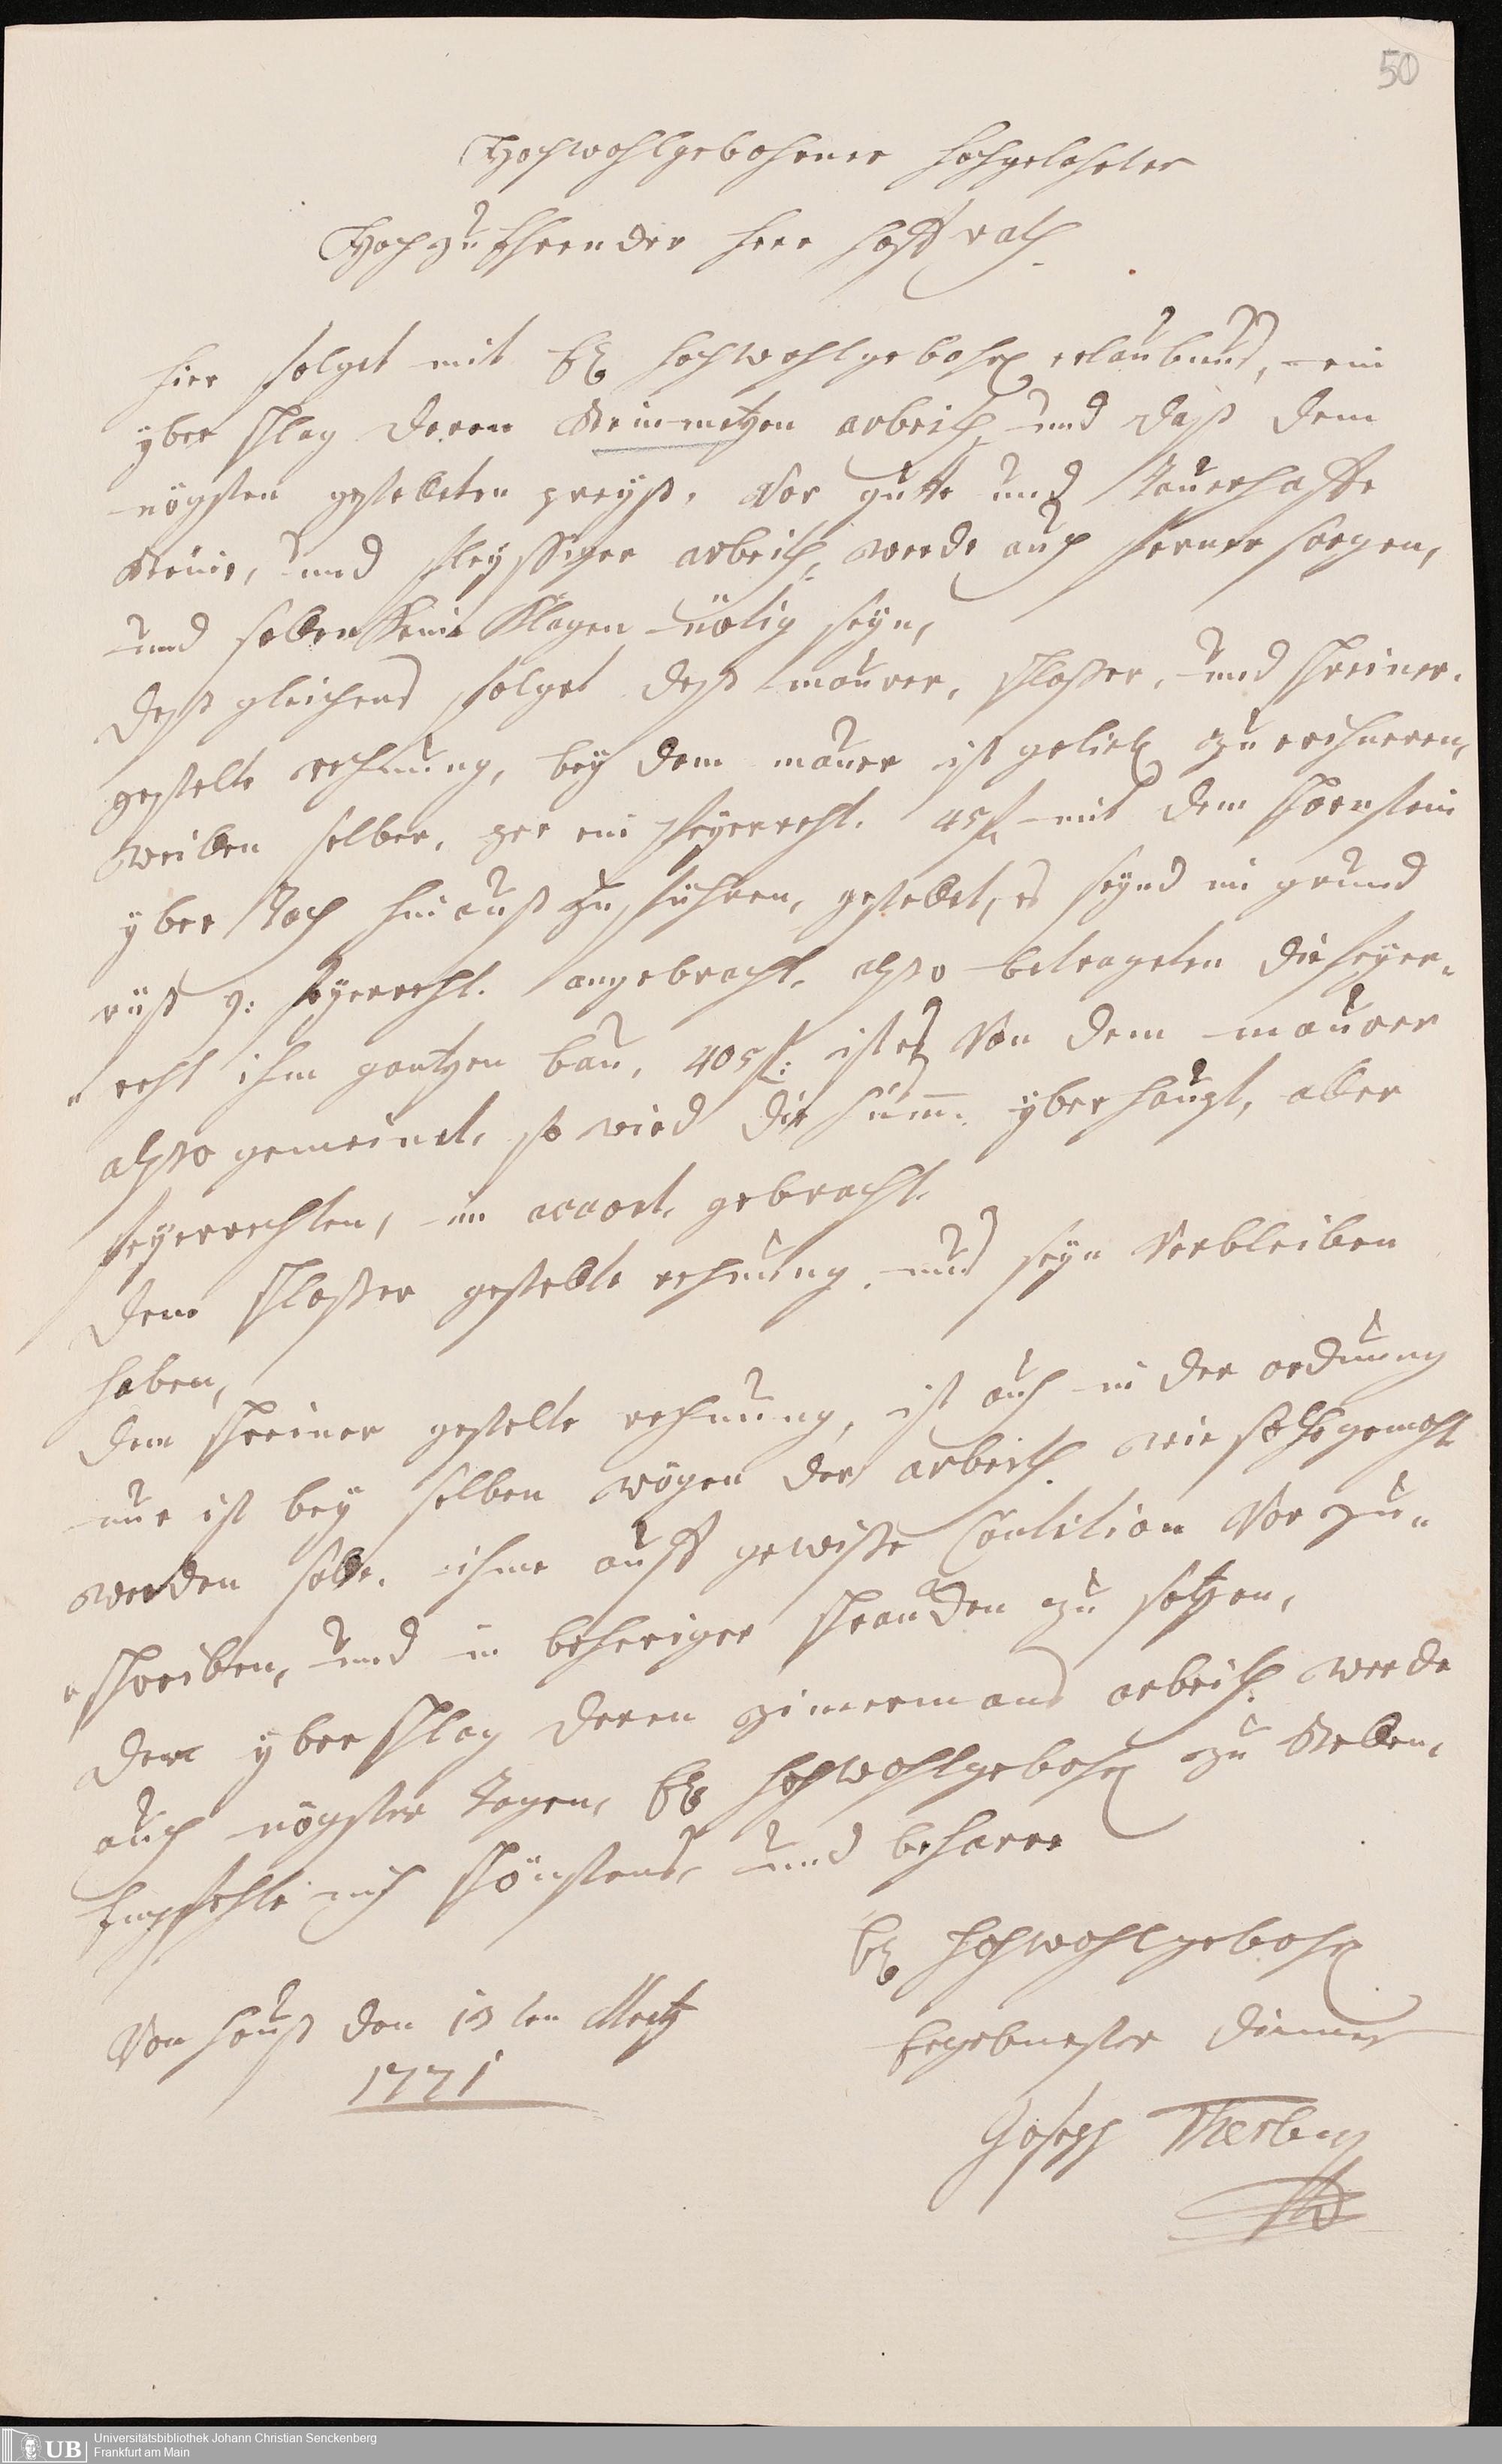 50
Hochwohlgebohrner Hochgelahrter
Hochzu Ehrender Herr Hoffrath
Hier folget mit Ew Hochwohlgebohr erlaubnus, ein
yber schlag deren Steinmetzen arbeith und daß dem
nögsten gestelleten preyß. Vor gutte und Tauerhaffte
Steine, und fleyssiger arbeith, werde auch ferner sorgen,
und sollen keine klagen nötig seyn,
Deß gleichens folget deß maurer, schlosser, und schreiner.
gestelte rechnung, bey dem maurer ist zu erihneren,
weillen selber, per ein feyerrecht. 45 f mit dem schornstein
yber Tach hinauß zu führen, gestellet, es seynd im grund
riß 9: feyerrecht. angebracht. also betrageten die feyer-
recht ihm gantzen bau, 405 f: ist es Von dem maurer
also gemeinet, so wird die sum̄. yberhaupt, aller
feyerrechten, in accort gebracht.
Dem schlosser gestellte rechnung. und seyn Verbleiben
haben,
Dem schreiner gestelte rechnung, ist auch in der ordnung
nur ist bey selben wögen der arbeith wie solche gemacht
werden solle. ihme auff gewisse Contition Vor zu-
schreiben, und in behöriger schrancken zu setzen,
Den yberschlag deren zimermans arbeith werde
auch nögster Tagen, Ew Hochwohlgebohr zu stellen,
Empfehle mich schönstens, und beharre
Ew Hochwohlgebohr
Von Hauß den 13ten Mertz
1771
Ergebnester Diener
Joseph